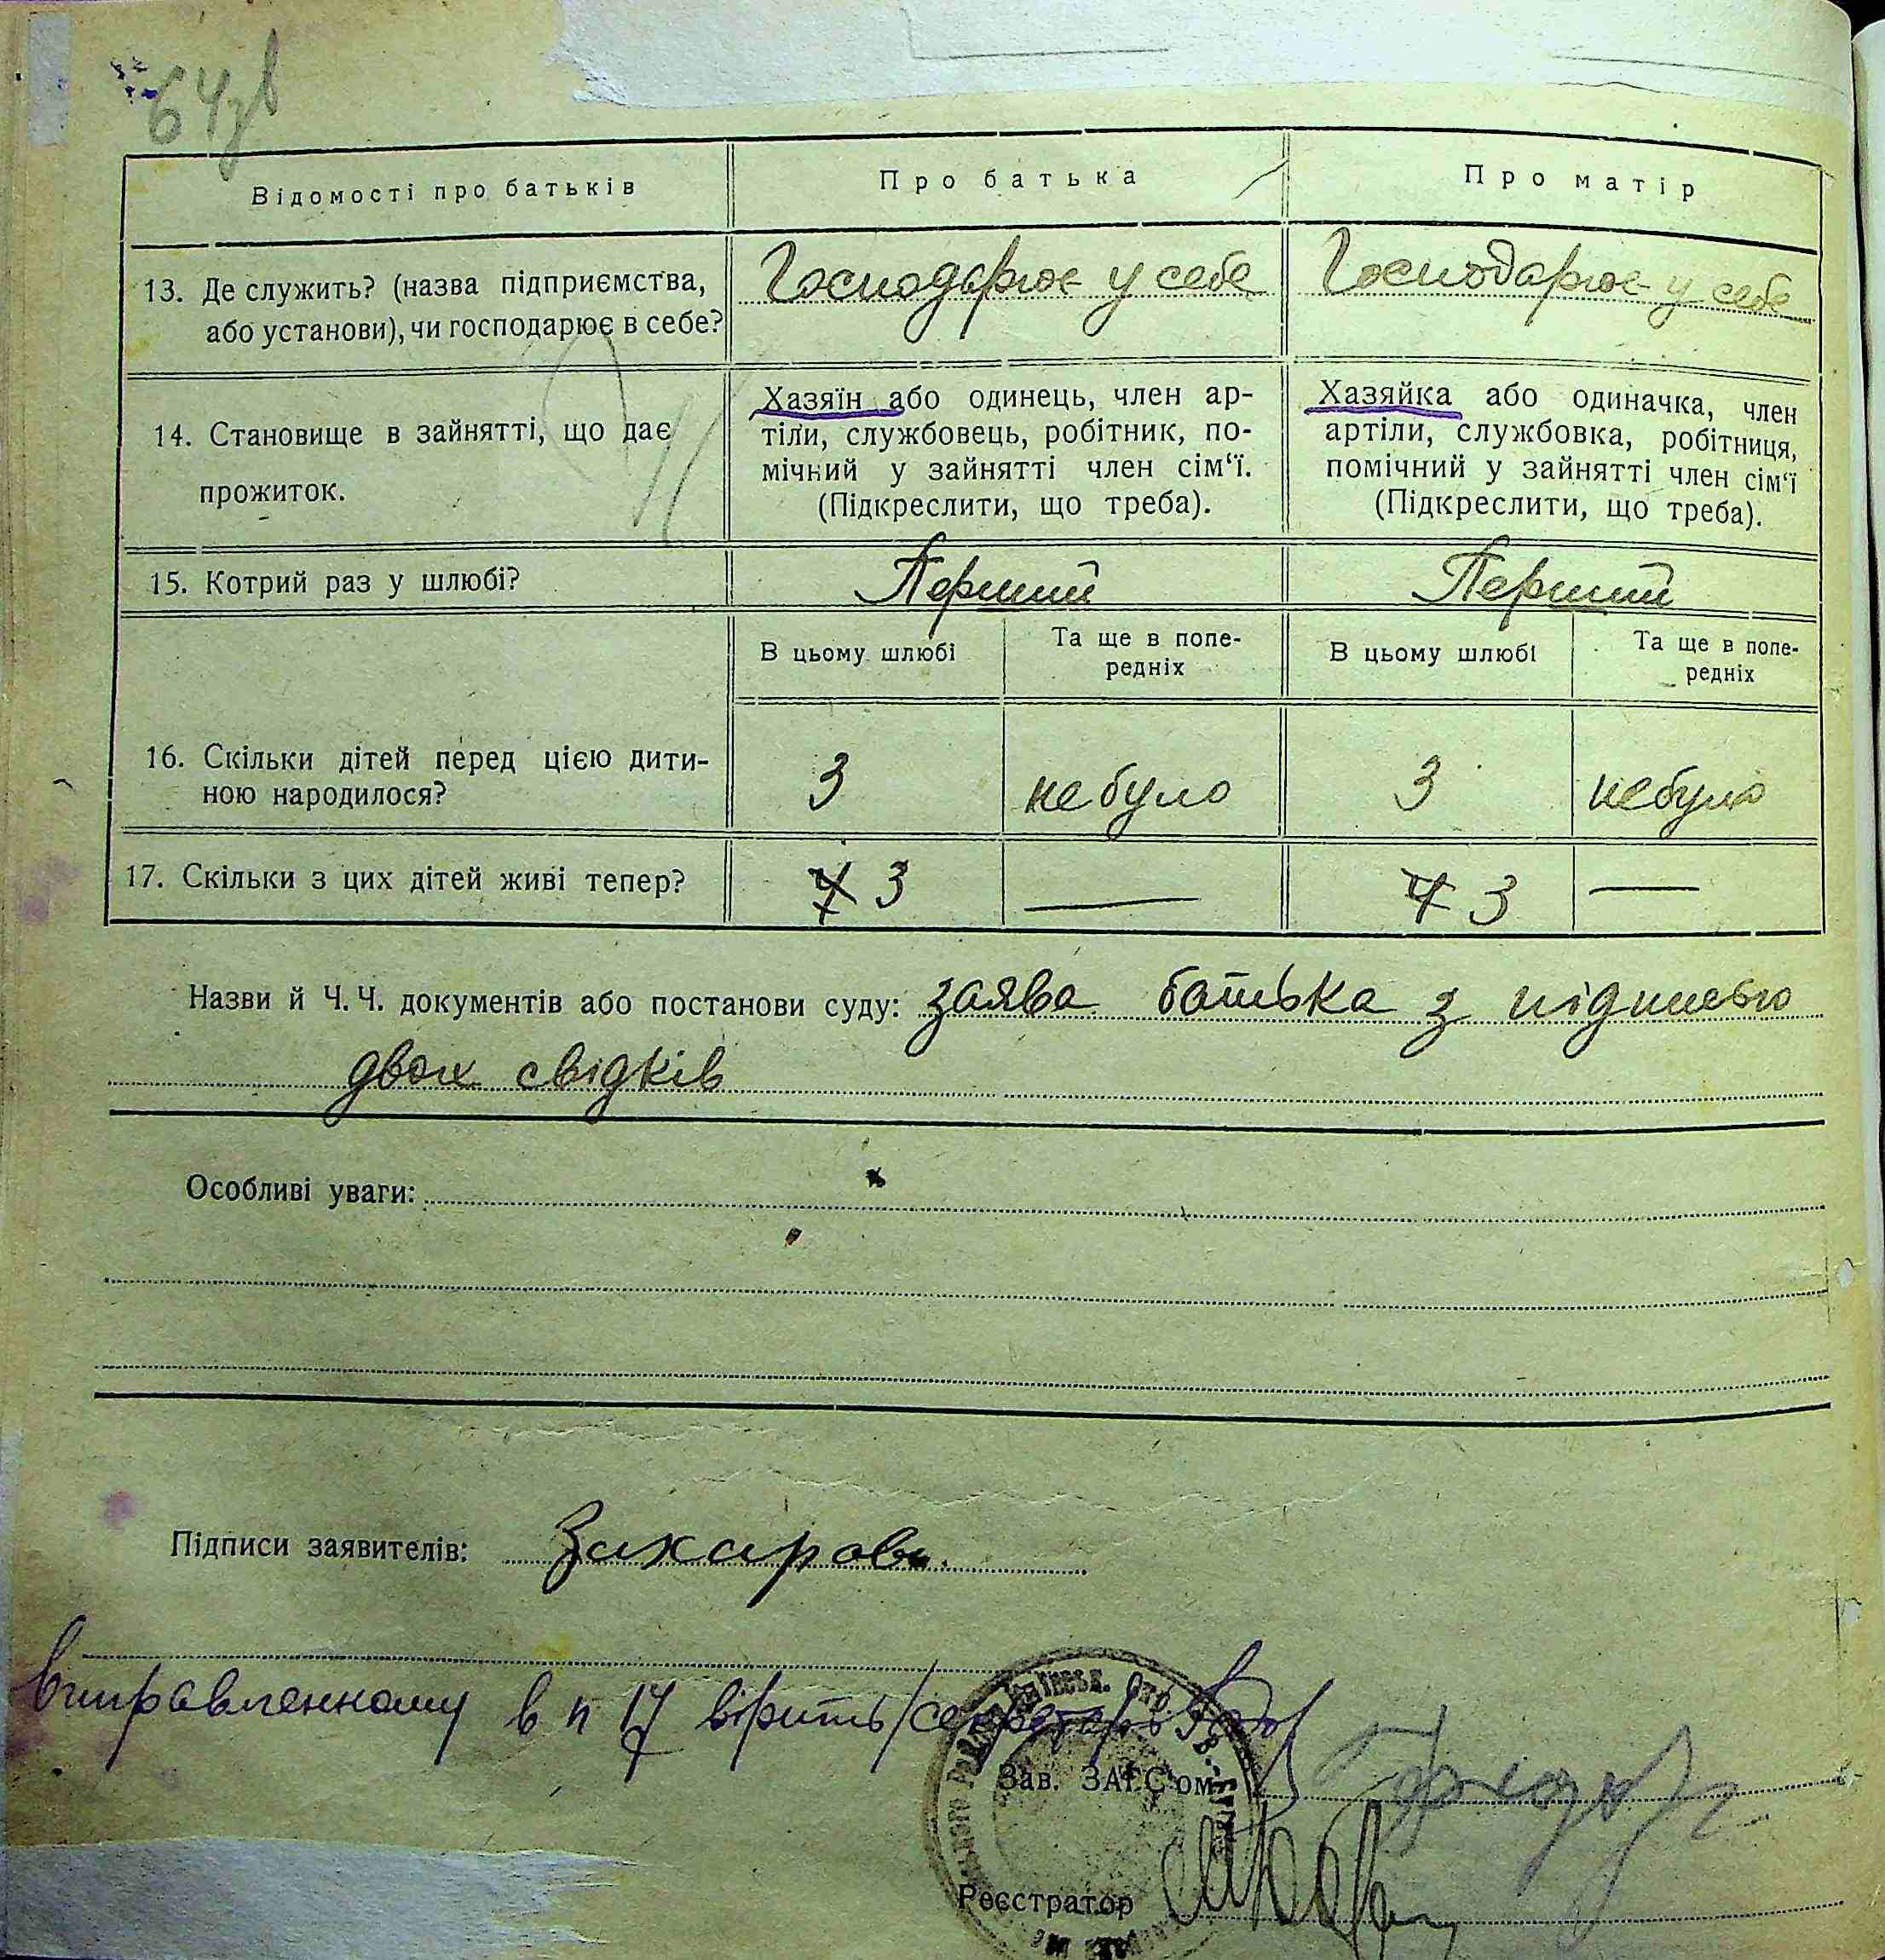 64зв
Відомості про батьків
Про батька
Про матір
13. Де служить? (назва підприємства,
або установи), чи господарює в себе?
Господарює у себе
Господарює у себе
14. Становище в зайнятті, що дає
прожиток.
Хазяїн або одинець, член ар-
тіли, службовець, робітник, по-
мічний у зайнятті член сім‘ї.
(Підкреслити, що треба).
Хазяйка або одиначка, член
артіли, службовка, робітниця,
помічний у зайнятті член сім‘ї
(Підкреслити, що треба).
15. Котрий раз у шлюбі?
Перший
Перший
В цьому шлюбі
Та ще в попе-
редніх
В цьому шлюбі
Та ще в попе-
редніх
16. Скільки дітей перед цією дити-
ною народилося?
3
не було
3
не було
17. Скільки з цих дітей живі тепер?
4 3
4 3
Назви й Ч. Ч. документів або постанови суду: заява батька з підписью
двох свідків
Особливі уваги:
Підписи заявителів: Захаров
Виправленному в п 17 вірить
Зав. ЗАГС'ом
Реєстратор